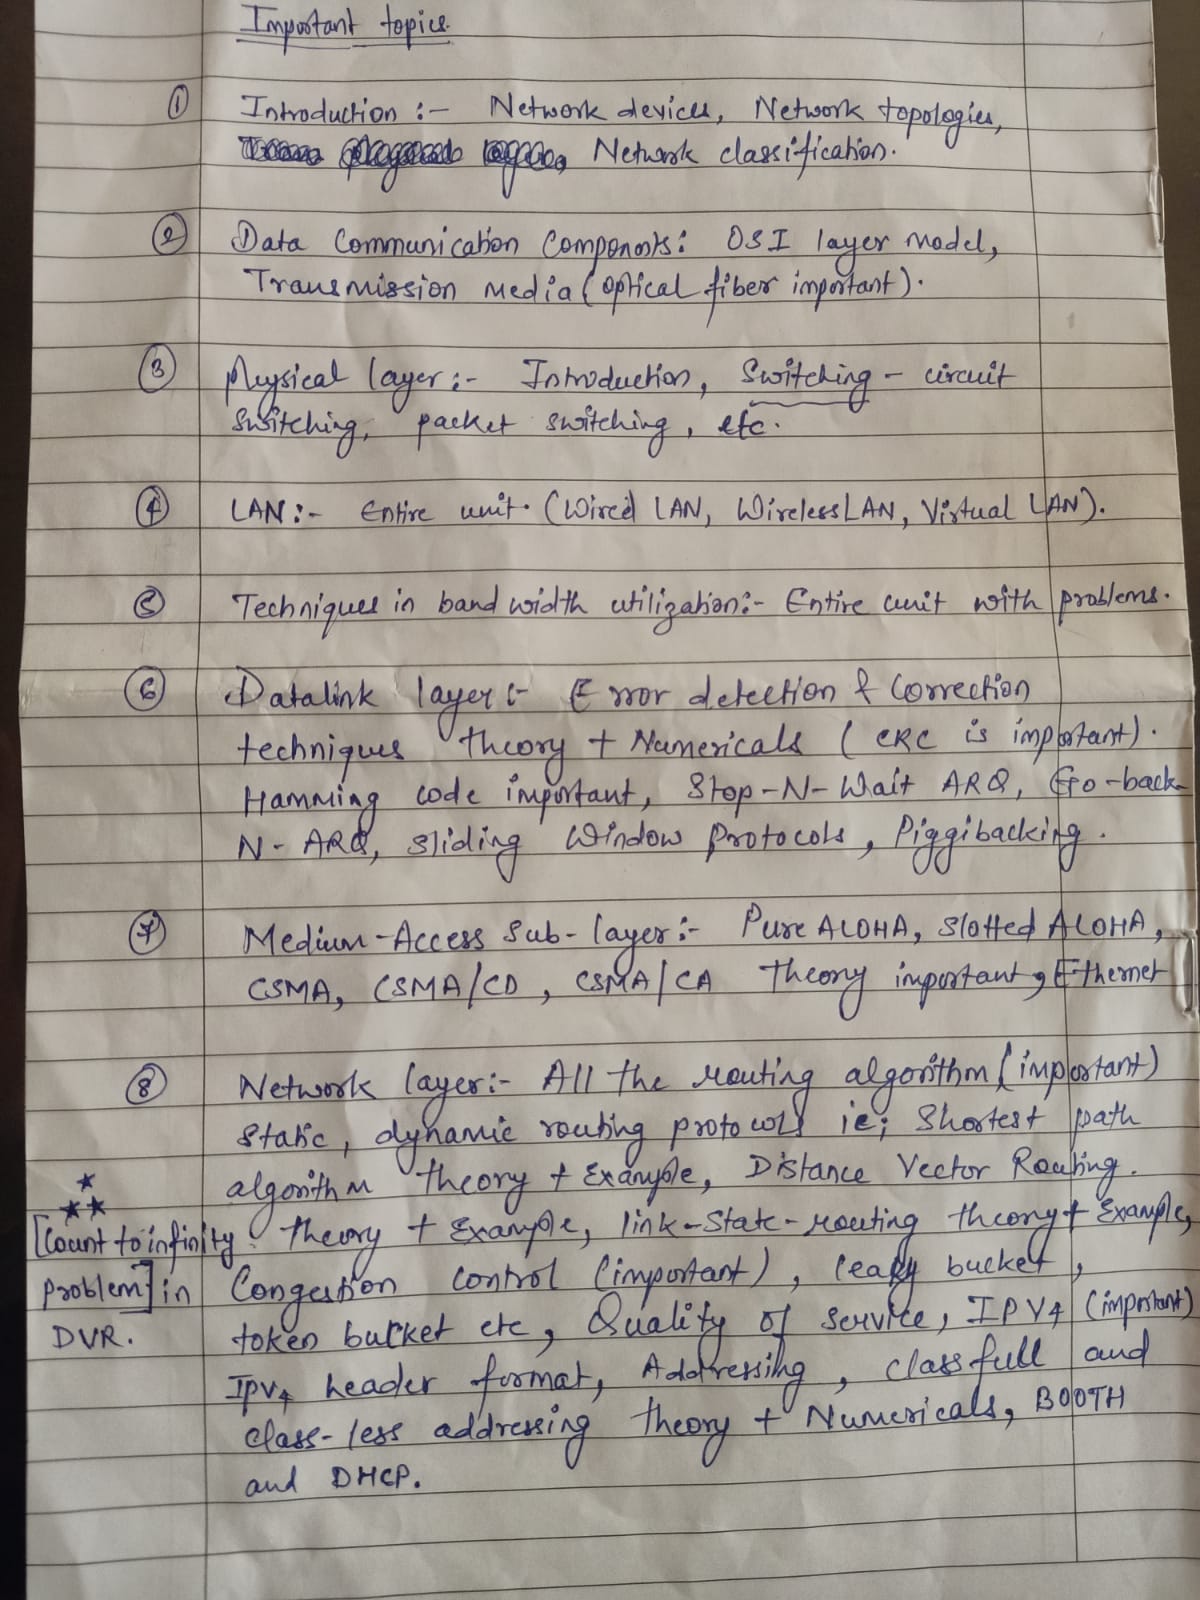 Important topics.
① Introduction :- Network devices, Network topologies,
Network classification.
② Data Communication Components: OSI layer model,
Transmission media (optical fiber important).
③ Physical layer :- Introduction, Switching - circuit
switching, packet switching, etc.
④ LAN :- Entire unit. (Wired LAN, Wireless LAN, Virtual LAN).
⑤ Techniques in band width utilization :- Entire unit with problems.
⑥ Datalink layer :- Error detection & Correction
techniques theory + Numericals ( CRC is important).
Hamming code important, Stop-N-Wait ARQ, Go-back-
N-ARQ, sliding Window protocols, Piggibacking.
⑦ Medium-Access Sub-layer :- Pure ALOHA, Slotted ALOHA,
CSMA, CSMA/CD, CSMA/CA Theory important, Ethernet
⑧ Network layer :- All the routing algorithm (important)
Static, dynamic routing protocols ie; Shortest path
algorithm theory + Example, Distance Vector Routing.
theory + Example, link-State-routing theory + Example,
Congestion control (important), leaky bucket,
token bucket etc, Quality of service, IPV4 (important)
IPV4 header format, Addressing, classfull and
class-less addressing theory + Numericals, BOOTH
and DHCP.
★
★★
[Count to infinity
problem] in
DVR.